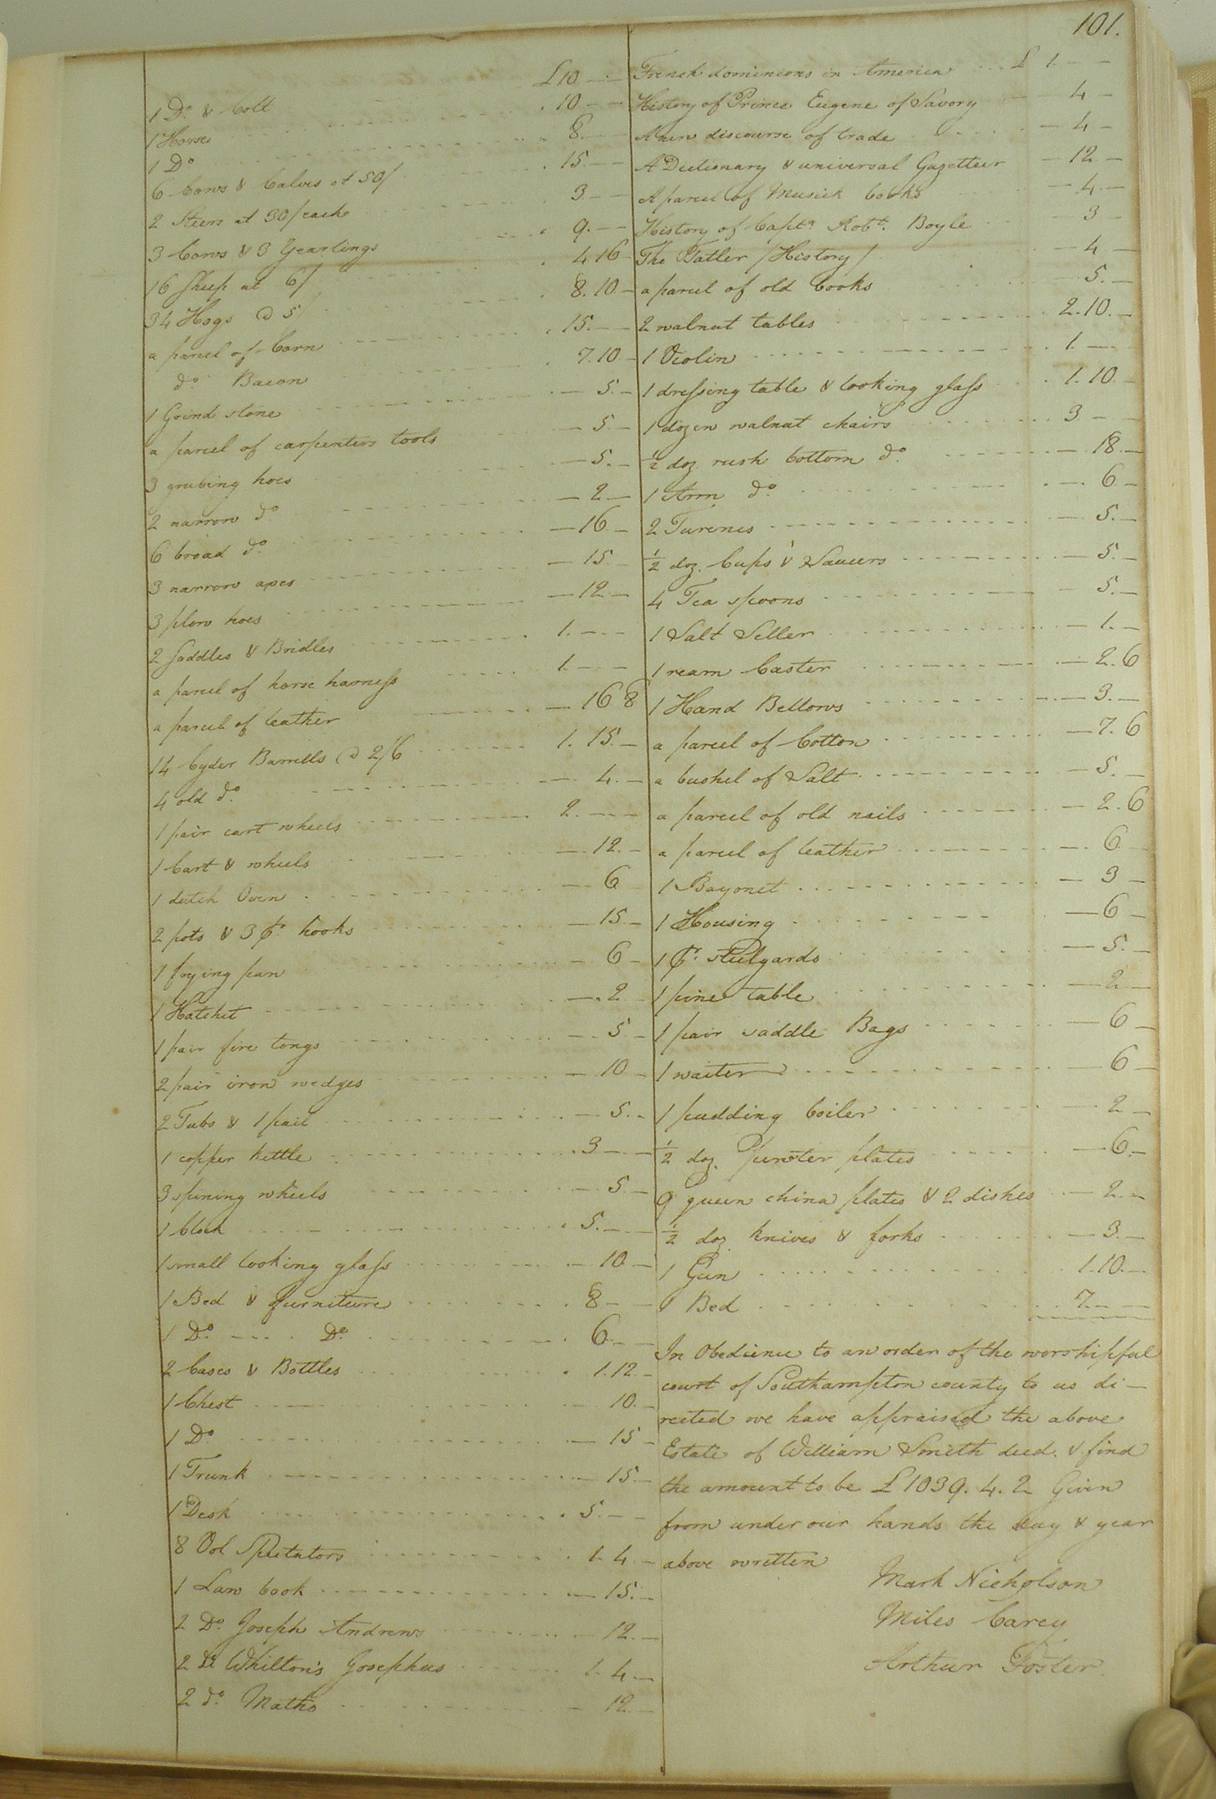 101.
1 Do & Colt £10 - -
1 Horse . 10 - -
1 Do 8. - -
6 Cows & Calves at 50/ . 15 - -
2 Steers at 30/ each 3 - -
3 Cows & 3 Yearlings . 9. - -
16 Sheep at 6/ . 4 16 -
34 Hogs @ 5/ . 8. 10. -
a parcel of Corn . 15. - -
do Bacon . 7. 10 -
1 Grind stone - 5. -
a parcel of carpenters tools - 5. -
3 grubing hoes - 5. -
2 narrow do - 2 -
6 broad do - 16 -
3 narrow axes - 15. -
3 plow hoes - 12 -
2 Saddles & Bridles 1. - -
a parcel of horse harness 1. - -
a parcel of leather - 16 8
14 Cyder Barrells @ 2/6 1. 15. -
4 old do - 4. -
1 pair cart wheels 2. - -
1 Cart & wheels - 12. -
1 dutch Oven - 6 -
2 pots & 3 pr hooks - 15. -
1 frying pan - 6 -
1 Hatchet - . 2 -
1 pair fire tongs - 5 -
2 pair iron wedges - 10 -
2 Tubs & 1 pail - 5. -
1 copper kettle . 3 - -
3 spining wheels - 5 -
1 Clock . 5. - -
1 small looking glass - 10 -
1 Bed & furniture . 8 - -
1 Do Do . 6. - -
2 Cases & Bottles . 1. 12. -
1 Chest - 10. -
1 Do - 15 -
1 Trunk - 15. -
1 Desk . 5. - -
8 Vol Spectators . 1. 4. -
1 Law book - 15. -
2 Do Joseph Andrews - 12. -
2 Do Whilton's Josephus 1. 4 -
2 do Maths - 12. -
French dominions in America £ 1. - -
History of Prince Eugene of Savory - 4 -
discourse of trade - 4 -
A Dictionary & universal Gazetteer - 12 -
A parcel of Musick books - 4. -
History of Captn Robt. Boyle 3 -
The Tatler /History/ - 4 -
a parcel of old books 5. -
2 walnut tables 2. 10. -
1 Violin 1. - -
1 dressing table & looking glass . 1. 10. -
1 dozen walnut chairs 3 - -
½ doz rush bottom do. - 18. -
1 Arm do - 6 -
2 Turenes - 5. -
½ doz. Cups & Saucers - 5. -
4 Tea spoons - 5. -
1 Salt Seller - 1. -
1 ream Caster - 2. 6
1 Hand Bellows - 3. -
a parcel of Cotton - 7. 6
a bushel of Salt - 5. -
a parcel of old nails - 2. 6
a parcel of leather - 6 -
1 Bayonet - 3 -
1 Housing - 6 -
1 pr. stillyards - 5. -
1 pine table - 2 -
1 pair saddle Bags - 6 -
1 waiter - 6 -
1 pudding boiler - 2 -
½ doz. pewter plates - 6. -
9 queen china plates & 2 dishes - 2. -
½ doz knives & forks - 3. -
1 Gun 1. 10. -
1 Bed 7. - -
In Obedience to an order of the worshipful
court of Southampton county to us di-
rected we have appraised the above
Estate of William Smith decd. & find
the amount to be £1039. 4. 2 Given
from under our hands the day & year
above written
Mark Nicholson
Miles Carey
Arthur Foster.